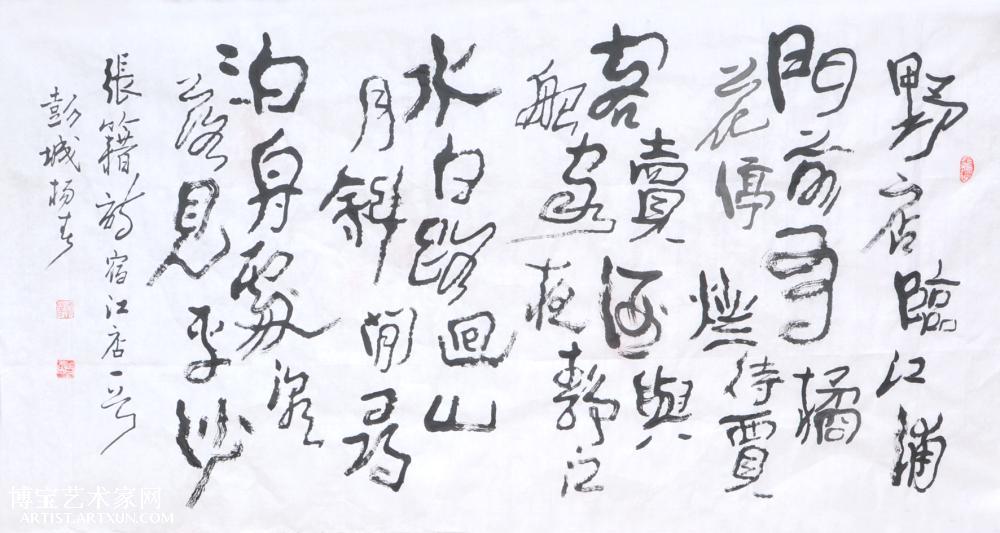 野店臨江浦
門前有橘
花停燈待賈
客賣酒與
舩家夜靜江
水白路回山
月斜閒尋
泊舟處潮
落見平沙
張籍詩宿江店一首
彭城杨
博宝艺术家网
ARTIST.ARTXUN.COM